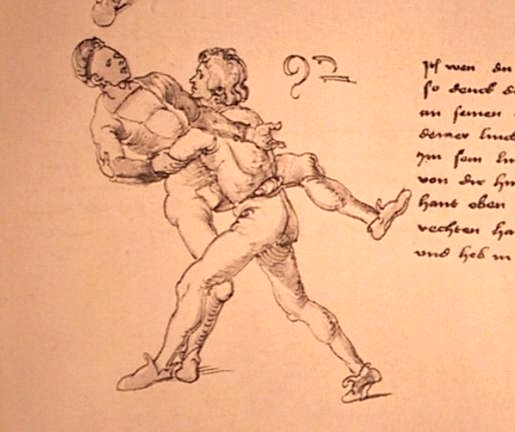 92
Jtem wen du
so denck d
an seinen
deiner linck
Jm sein lin
von dir hin
hant eben
rechten ha
und heb in